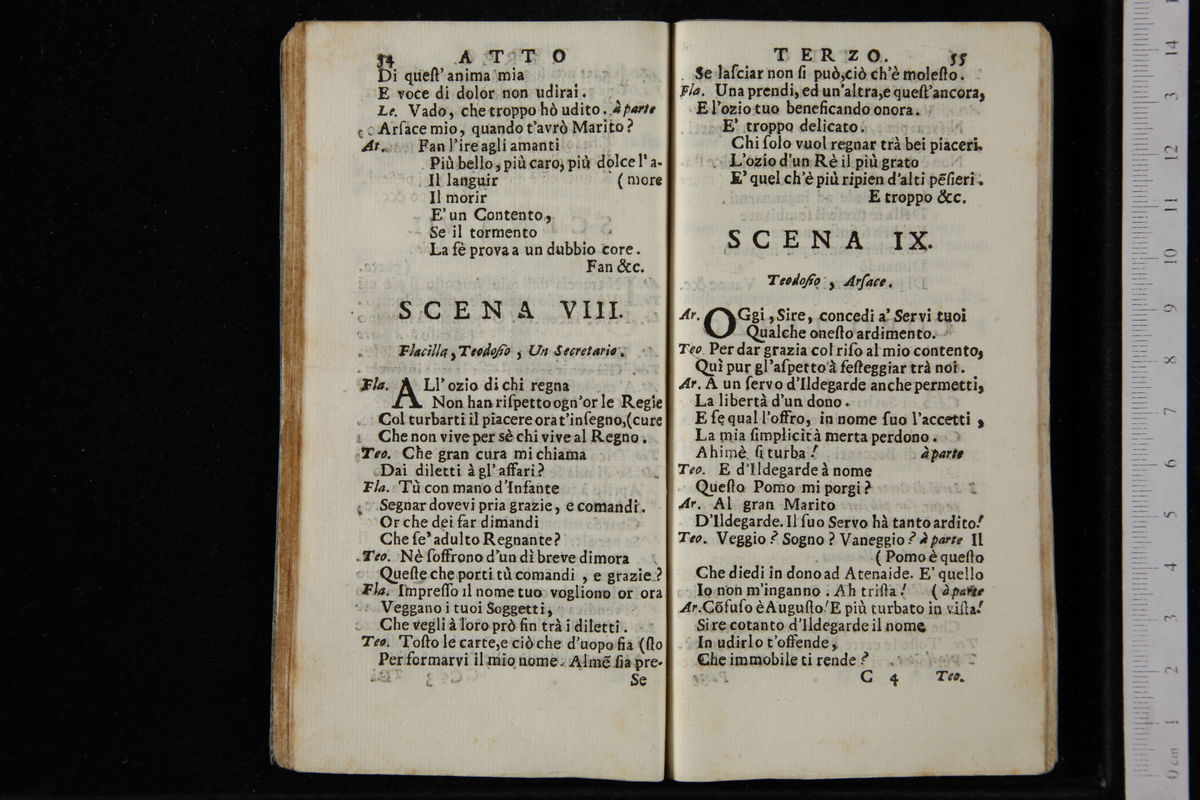 54 ATTO
Di queſt' anima mia
E voce di dolor non udirai.
Le. Vado, che troppo hò udito. à parte
Arſace mio, quando t'avrò Marito?
At. Fan l'ire agli amanti
Più bello, più caro, più dolce l'a-
Il languir (more
Il morir
E' un Contento,
Se il tormento
La fè prova a un dubbio core.
Fan &c.
SCENA VIII.
Flacilla, Teodoſio, Un Secretario.
Fla. ALl' ozio di chi regna
Non han riſpetto ogn'or le Regie
Col turbarti il piacere ora t'inſegno, (cure
Che non vive per sè chi vive al Regno.
Teo. Che gran cura mi chiama
Dai diletti à gl' affari?
Fla. Tù con mano d'Infante
Segnar dovevi pria grazie, e comandi.
Or che dei far dimandi
Che ſe' adulto Regnante?
Teo. Nè ſoffrono d'un dì breve dimora
Queſte che porti tù comandi, e grazie?
Fla. Impreſſo il nome tuo vogliono or ora
Veggano i tuoi Soggetti,
Che vegli à loro prò fin trà i diletti.
Teo. Toſto le carte, e ciò che d'uopo fia (ſto
Per formarvi il mio nome. Almẽ ſia pre-
Se
TERZO. 55
Se laſciar non ſi può, ciò ch'è moleſto.
Fla. Una prendi, ed un'altra, e queſt'ancora,
E l'ozio tuo beneficando onora.
E' troppo delicato.
Chi ſolo vuol regnar trà bei piaceri.
L'ozio d'un Rè il più grato
E' quel ch'è più ripien d'alti pẽſieri.
E troppo &c.
SCENA IX.
Teodoſio, Arſace.
Ar. OGgi, Sire, concedi a' Servi tuoi
Qualche oneſto ardimento.
Teo Per dar grazia col riſo al mio contento,
Quì pur gl'aſpetto à feſteggiar trà noi.
Ar. A un ſervo d'Ildegarde anche permetti,
La libertà d'un dono.
E ſe qual l'offro, in nome ſuo l'accetti,
La mia ſimplicità merta perdono.
Ahimè ſi turba! à parte
Teo. E d'Ildegarde à nome
Queſto Pomo mi porgi?
Ar. Al gran Marito
D'Ildegarde. Il ſuo Servo hà tanto ardito!
Teo. Veggio? Sogno? Vaneggio? à parte Il
(Pomo è queſto
Che diedi in dono ad Atenaide. E' quello
Io non m'inganno. Ah triſta! (à parte
Ar. Cõfuſo è Auguſto! E più turbato in viſta!
Sire cotanto d'Ildegarde il nome
In udirlo t'offende,
Che immobile ti rende?
C 4 Teo.